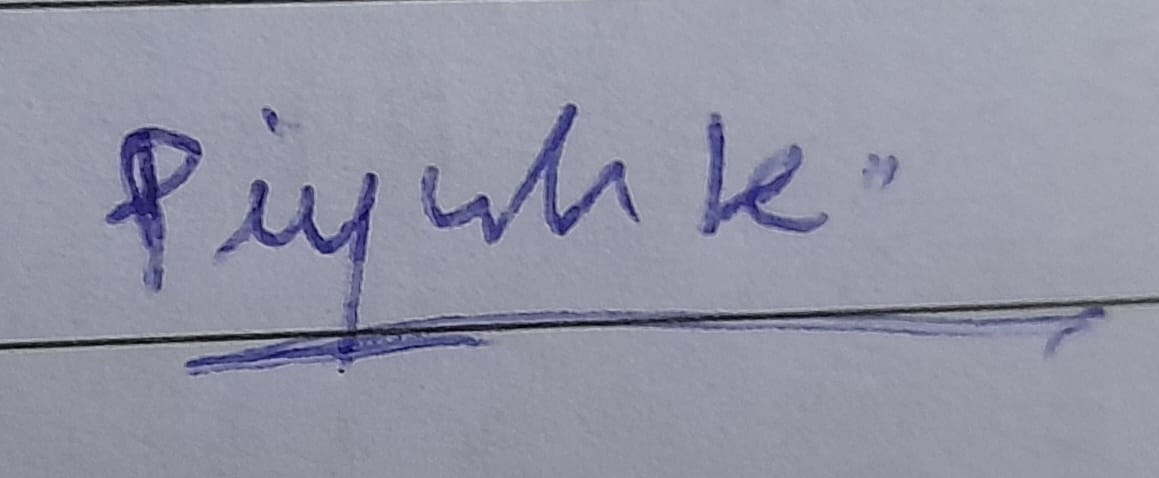 Piyush K"